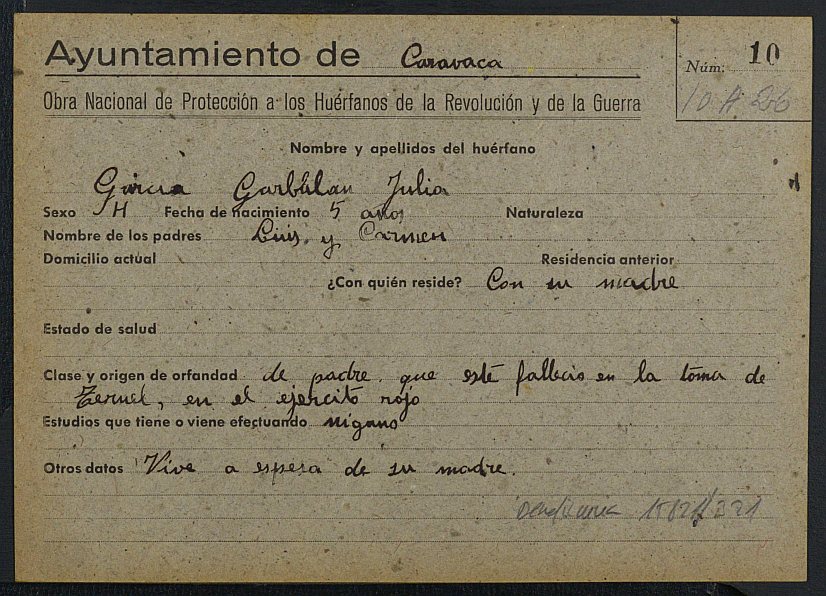 Ayuntamiento de Caravaca
Núm. 10
10 A 26
Obra Nacional de Protección a los Huérfanos de la Revolución y de la Guerra
Nombre y apellidos del huérfano
Garcia Garbblan Julia
Sexo H Fecha de nacimiento 5 años Naturaleza
Nombre de los padres Luis y Carmen
Domicilio actual Residencia anterior
¿Con quién reside? Con su madre
Estado de salud
Clase y origen de orfandad de padre que esté fallecio en la toma de
Teruel, en el ejercito rojo
Estudios que tiene o viene efectuando nigano
Otros datos Vive a espesa de su madre.